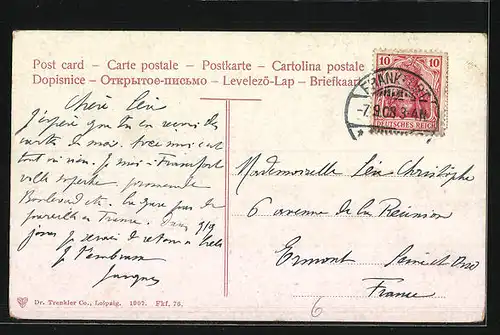 Post card – Carte postale – Postkarte – Cartolina postale
Dopisnice – Открытое-письмо – Levelező-Lap – Briefkaart
10 10
DEUTSCHES REICH
FRANKFURT
-7.9.08.3-4N
Chère Léa
J'espère que tu en
carte de moi.
tout va bien. Je suis à Francfort
ville superbe. promenade
Boulevard etc. La gare
pareille en France. Dans
jours je serai de retour à
Je t'embrasse
Jacques
Mademoiselle Léa Christophe
6 avenue de la Réunion
Ermont Seine et Oise
France
Dr. Trenkler Co., Leipzig. 1907. Fkf. 76.
6